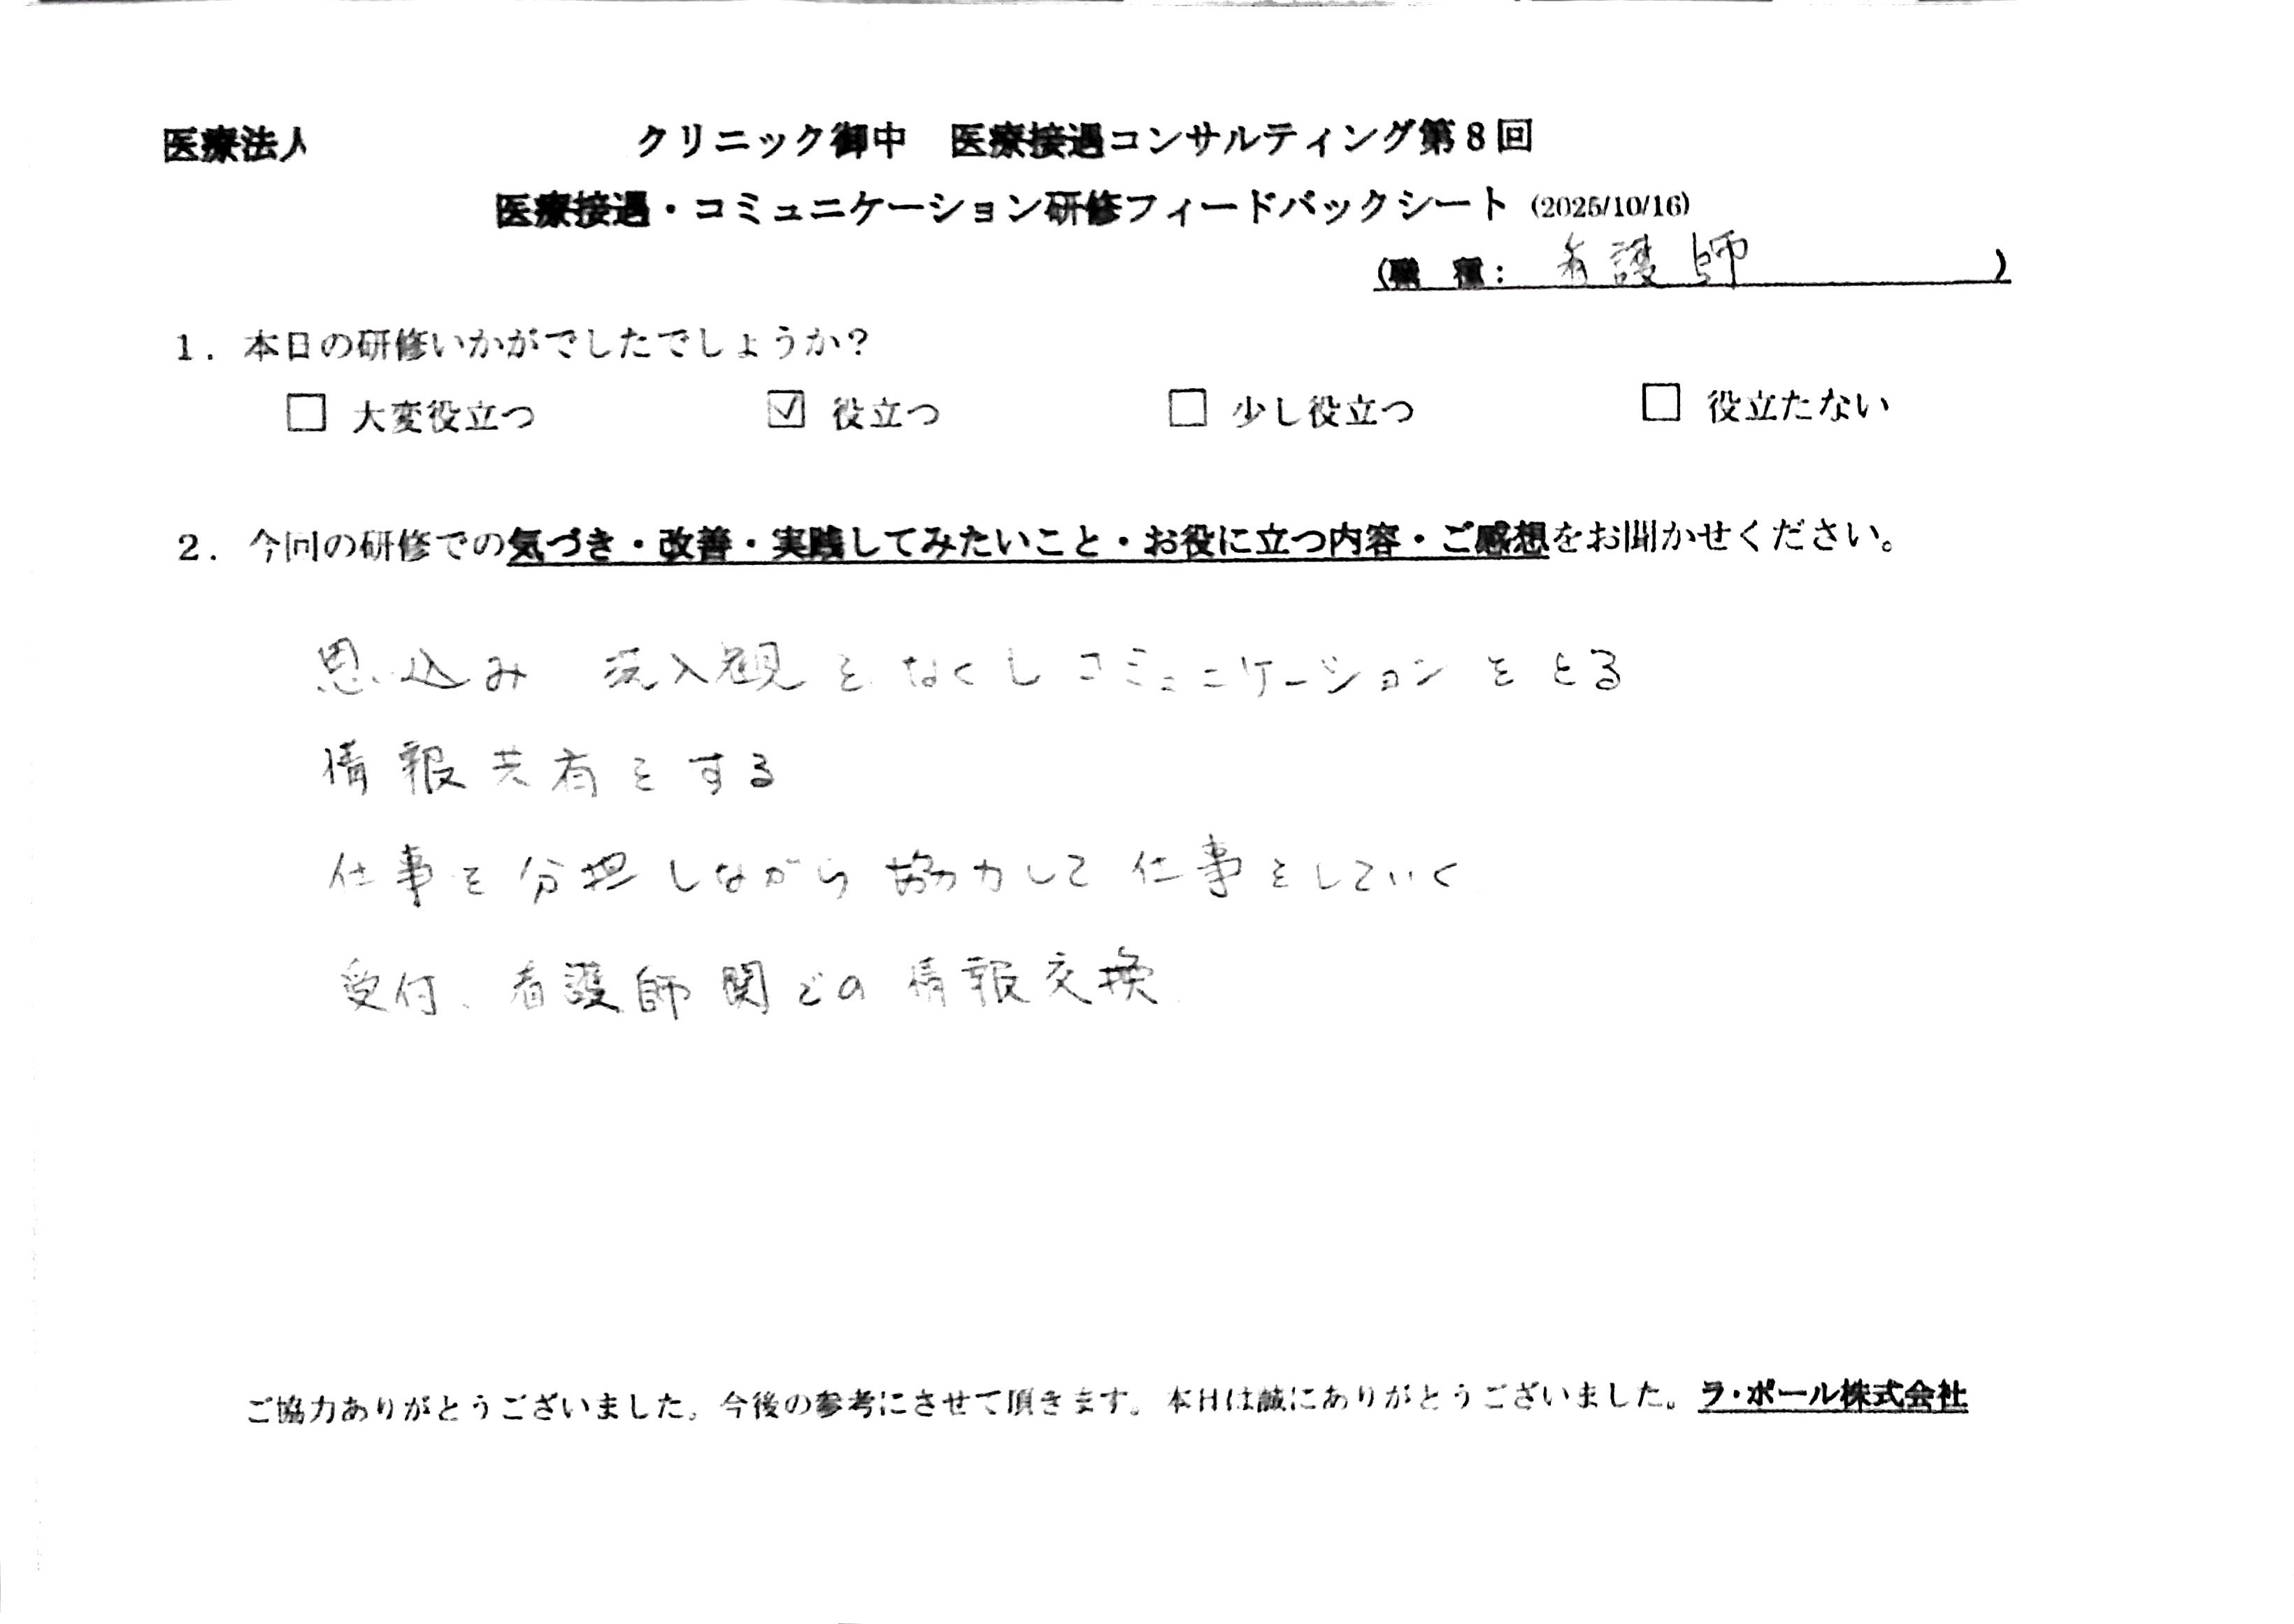 医療法人 クリニック御中 医療接遇コンサルティング第8回
医療接遇・コミュニケーション研修フィードバックシート (2025/10/16)
(職 種: 看護師 )
1. 本日の研修いかがでしたでしょうか?
☐ 大変役立つ ☑ 役立つ ☐ 少し役立つ ☐ 役立たない
2. 今回の研修での気づき・改善・実践してみたいこと・お役に立つ内容・ご感想をお聞かせください。
思込み 洗入観をなくしコミュニケーションをとる
情報共有をする
仕事を分担しながら協力して仕事をしていく
受付、看護師関での情報交換
ご協力ありがとうございました。今後の参考にさせて頂きます。本日は誠にありがとうございました。ラ・ポール株式会社